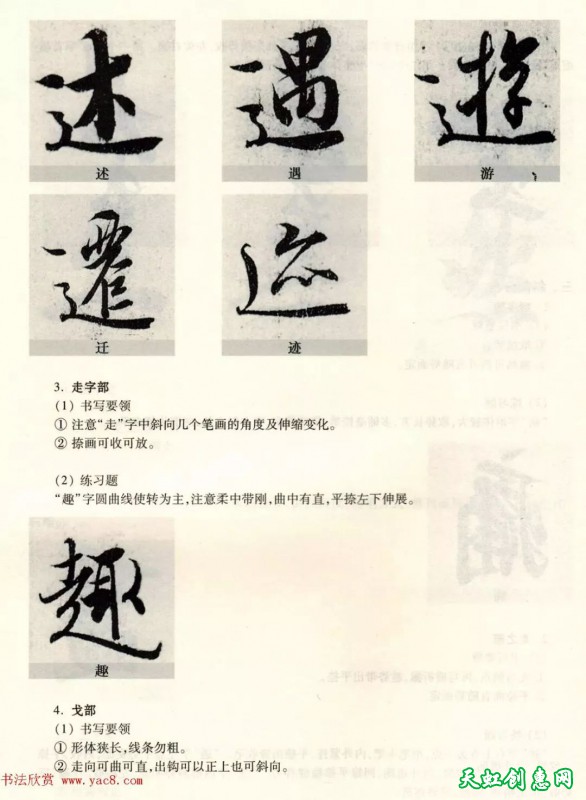 述 遇 游
述 遇 游
迁 迹
迁 迹
3. 走字部
(1) 书写要领
① 注意“走”字中斜向几个笔画的角度及伸缩变化。
② 捺画可收可放。
(2) 练习题
“趣”字圆曲线使转为主,注意柔中带刚,曲中有直,平捺左下伸展。
趣
趣
4. 戈部
(1) 书写要领
① 形体狭长,线条勿粗。
② 走向可曲可直,出钩可以正上也可斜向。
书法欣赏 www.yac8.com
天虹创意网